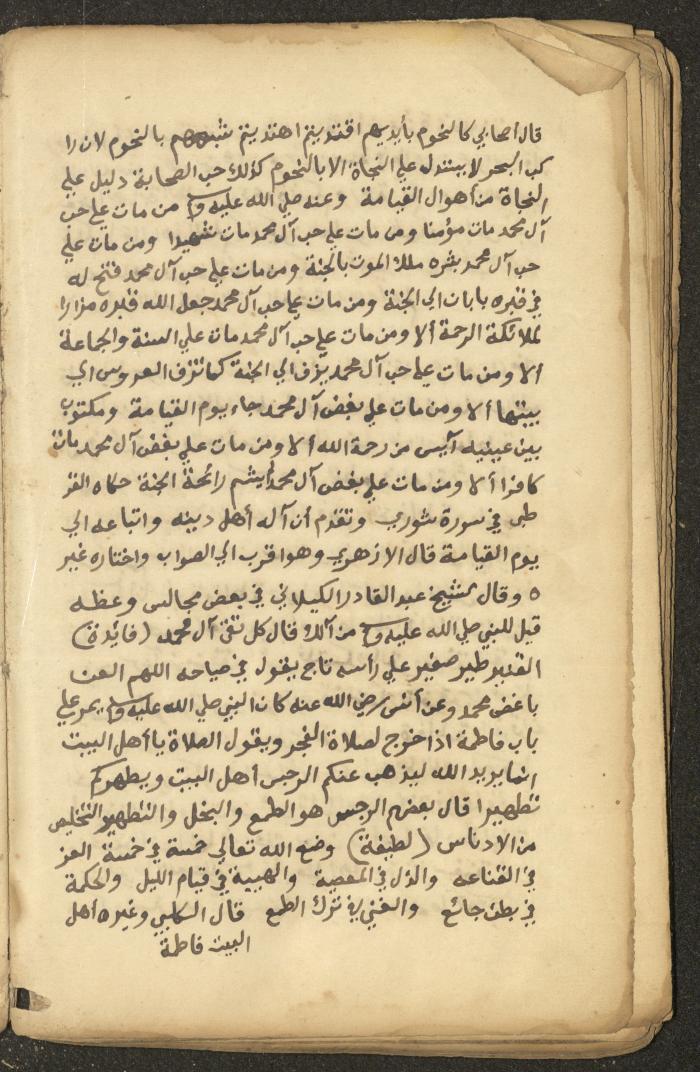 قال أصحابي كالنجوم بأيديهم اقتديتم اهتديتم شبههم بالنجوم لان را
كب البحر لا يستدل علي النجاة الا بالنجوم كذلك حب الصحابة دليل علي
النجاة من أهوال القيامة وعنه صلي الله عليه وسلم من مات علي حب
آل محمد مات مؤمنا ومن مات علي حب آل محمد مات شهيدا ومن مات علي
حب آل محمد بشره ملك الموت بالجنة ومن مات علي حب آل محمد فتح له
في قبره بابان الي الجنة ومن مات علي حب آل محمد جعل الله قبره مزارا
لملائكة الرحمة ألا ومن مات علي حب آل محمد مات علي السنة والجماعة
ألا ومن مات علي حب آل محمد يزف الي الجنة كما تزف العروس الي
بيتها ألا ومن مات علي بغض آل محمد جاء يوم القيامة ومكتوب
بين عينيه آيس من رحمة الله ألا ومن مات علي بغض آل محمد مات
كافرا ألا ومن مات علي بغض آل محمد لم يشم رائحة الجنة حكاه القر
طبي في سورة شوري وتقدم أن آله أهل دينه واتباعه الي
يوم القيامة قال الازهري وهو اقرب الي الصواب واختاره غير
ه وقال الشيخ عبد القادر الكيلاني في بعض مجالس وعظه
قيل للنبي صلي الله عليه وسلم من آلك قال كل تقي آل محمد (فايدة)
القنبر طير صغير علي رأسه تاج يقول في صياحه اللهم العن
باغض محمد وعن أنس رضي الله عنه كان النبي صلي الله عليه وسلم يمر علي
باب فاطمة اذا خرج لصلاة الفجر ويقول الصلاة يا أهل البيت
انما يريد الله ليذهب عنكم الرجس أهل البيت ويطهركم
تطهيرا قال بعضهم الرجس هو الطمع والبخل والتطهير التخليص
من الادناس (لطيفة) وضع الله تعالي خمسة في خمسة العز
في القناعه والذل في المعصية والهيبة في قيام الليل والحكمة
في بطن جائع والغني في ترك الطمع قال الكلبي وغيره أهل
البيت فاطمة